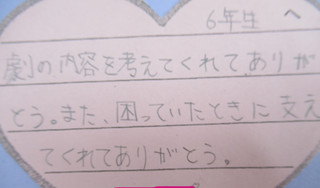 6年生 へ
劇の内容を考えてくれて、ありが
とう。また、困っていたときに支え
てくれてありがとう。